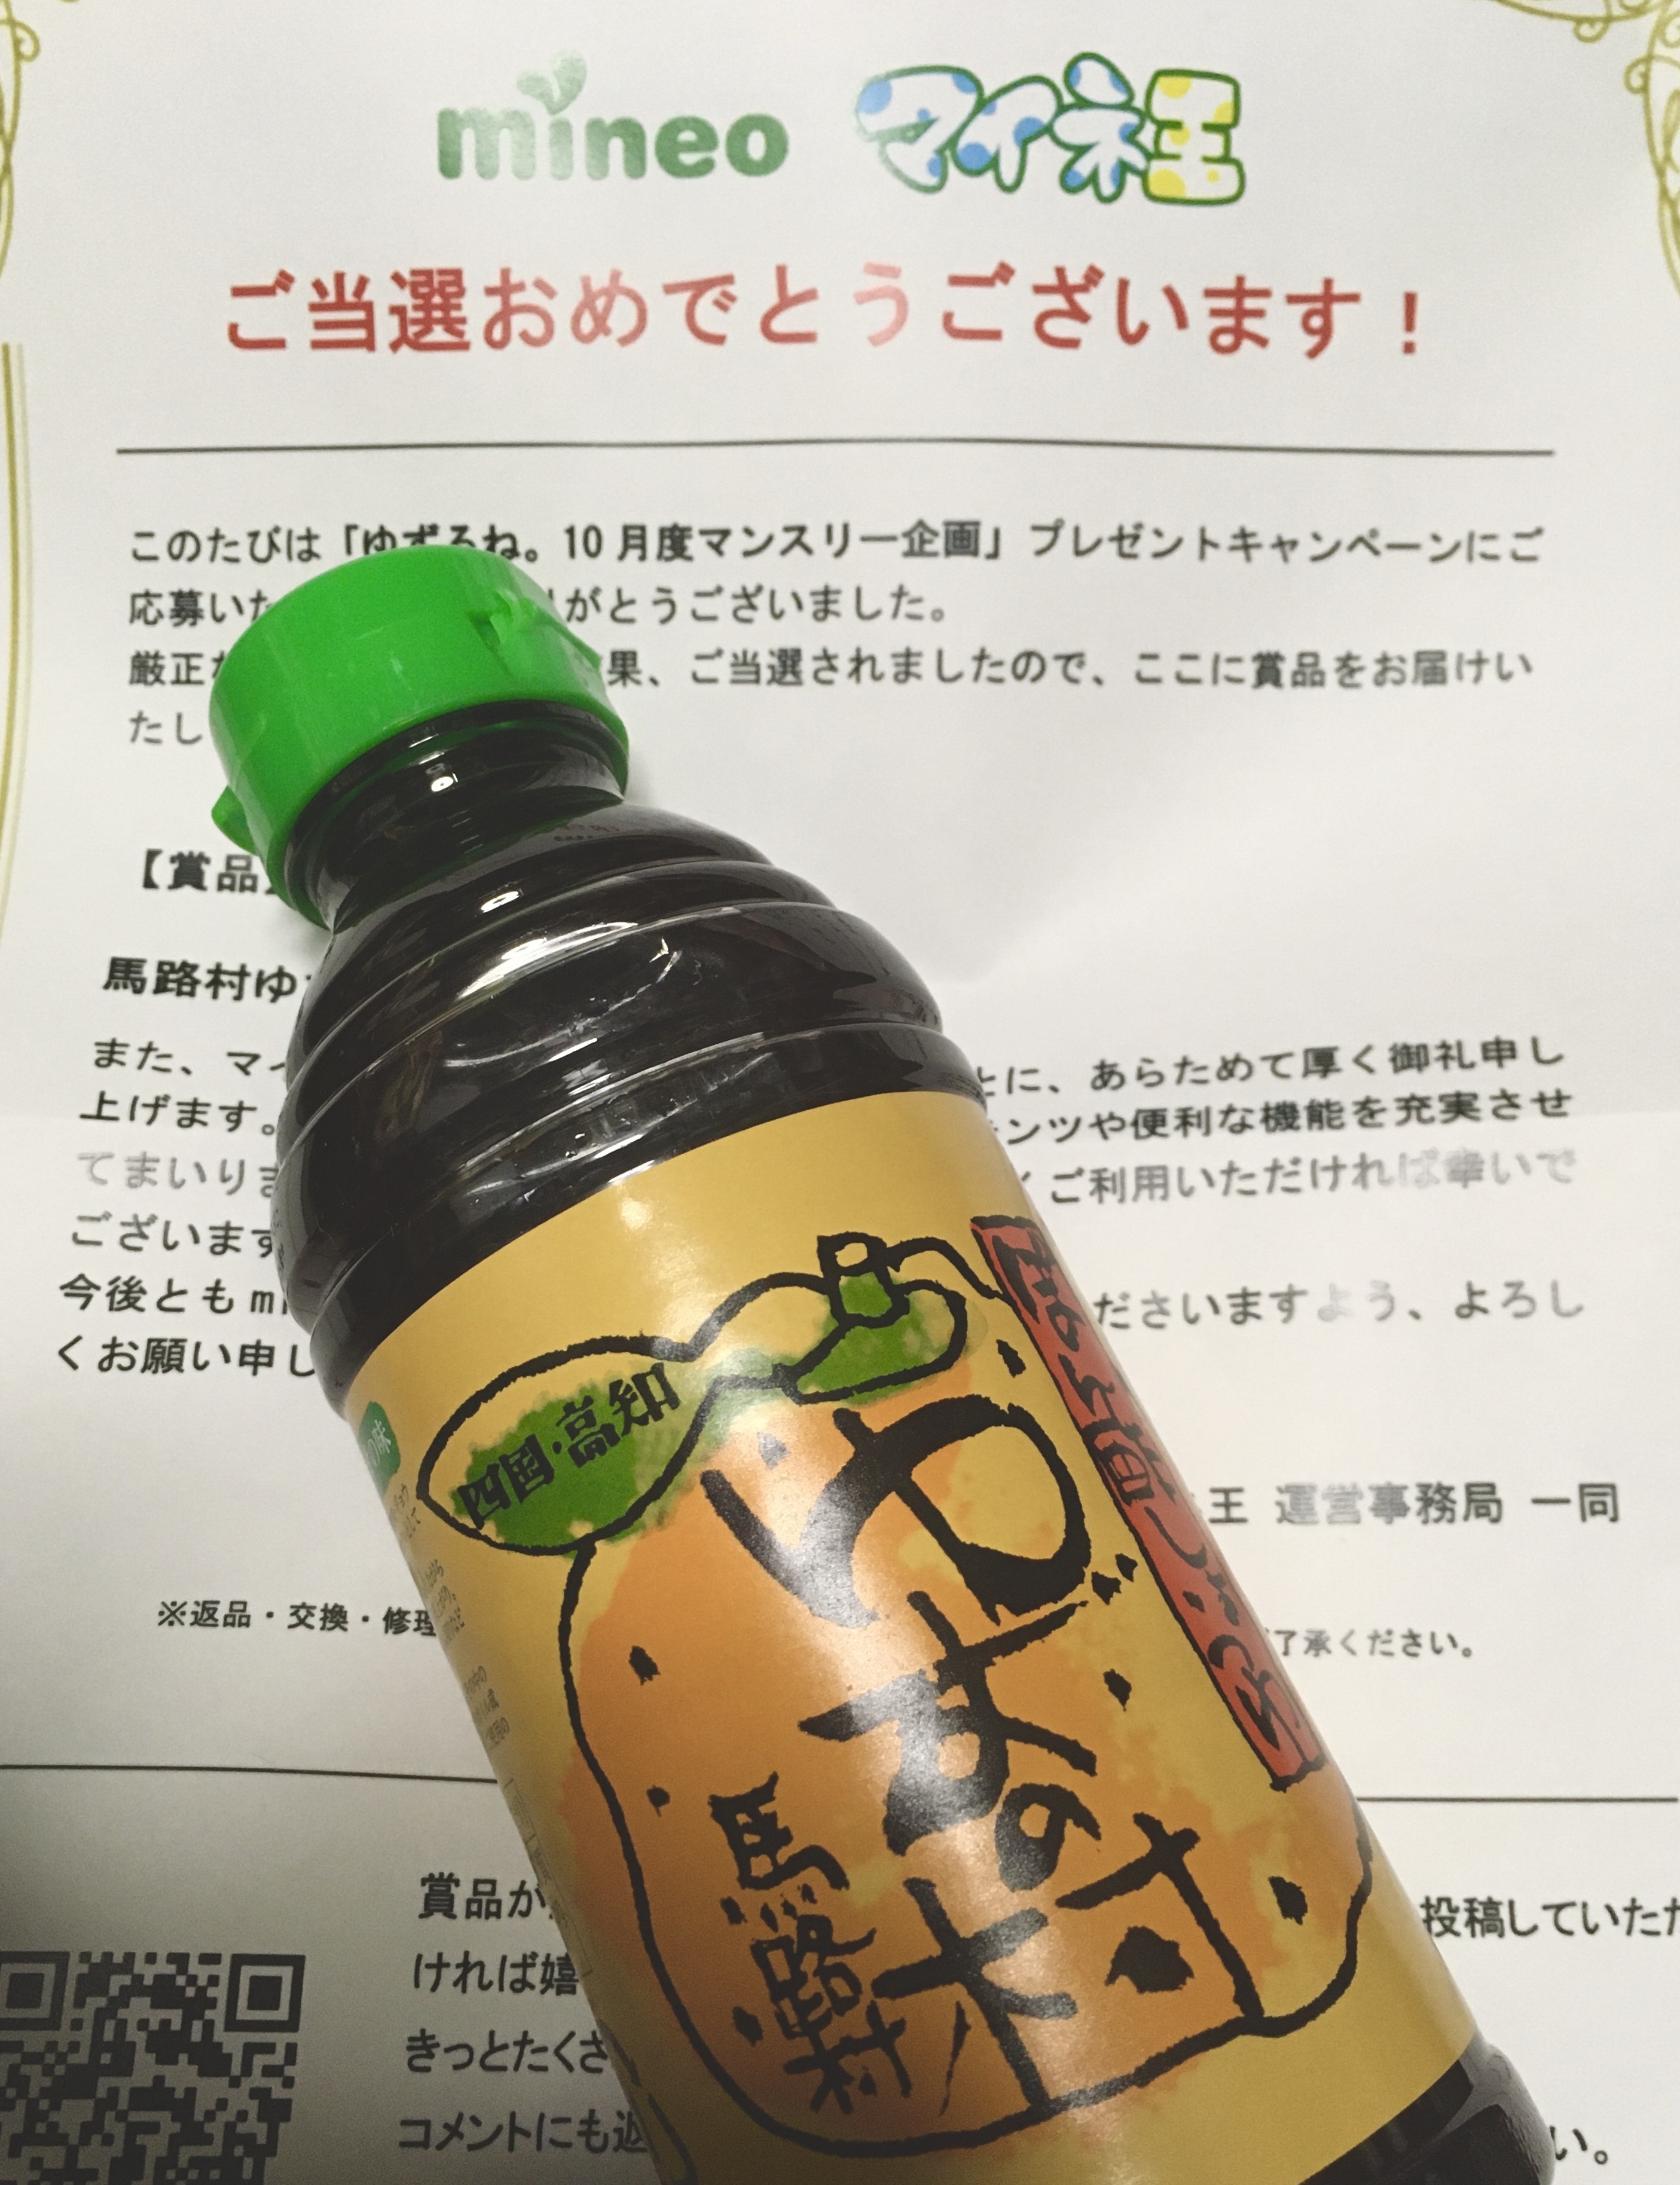 mineo マイネ王
ご当選おめでとうございます！
このたびは「ゆずるね。10月度マンスリー企画」プレゼントキャンペーンにご
応募いた がとうございました。
厳正な 果、ご当選されましたので、ここに賞品をお届けい
たし
【賞品
馬路村ゆ
また、マイ とに、あらためて厚く御礼申し
上げます。 ンツや便利な機能を充実させ
てまいりま ご利用いただければ幸いで
ございます
今後とも mi ださいますよう、よろし
くお願い申し
王 運営事務局 一同
※返品・交換・修理 了承ください。
賞品が 投稿していただ
ければ嬉
きっとたくさ
コメントにも返 い。
四国・高知
ぽん酢しょうゆ
ゆずの村
馬路村
の味